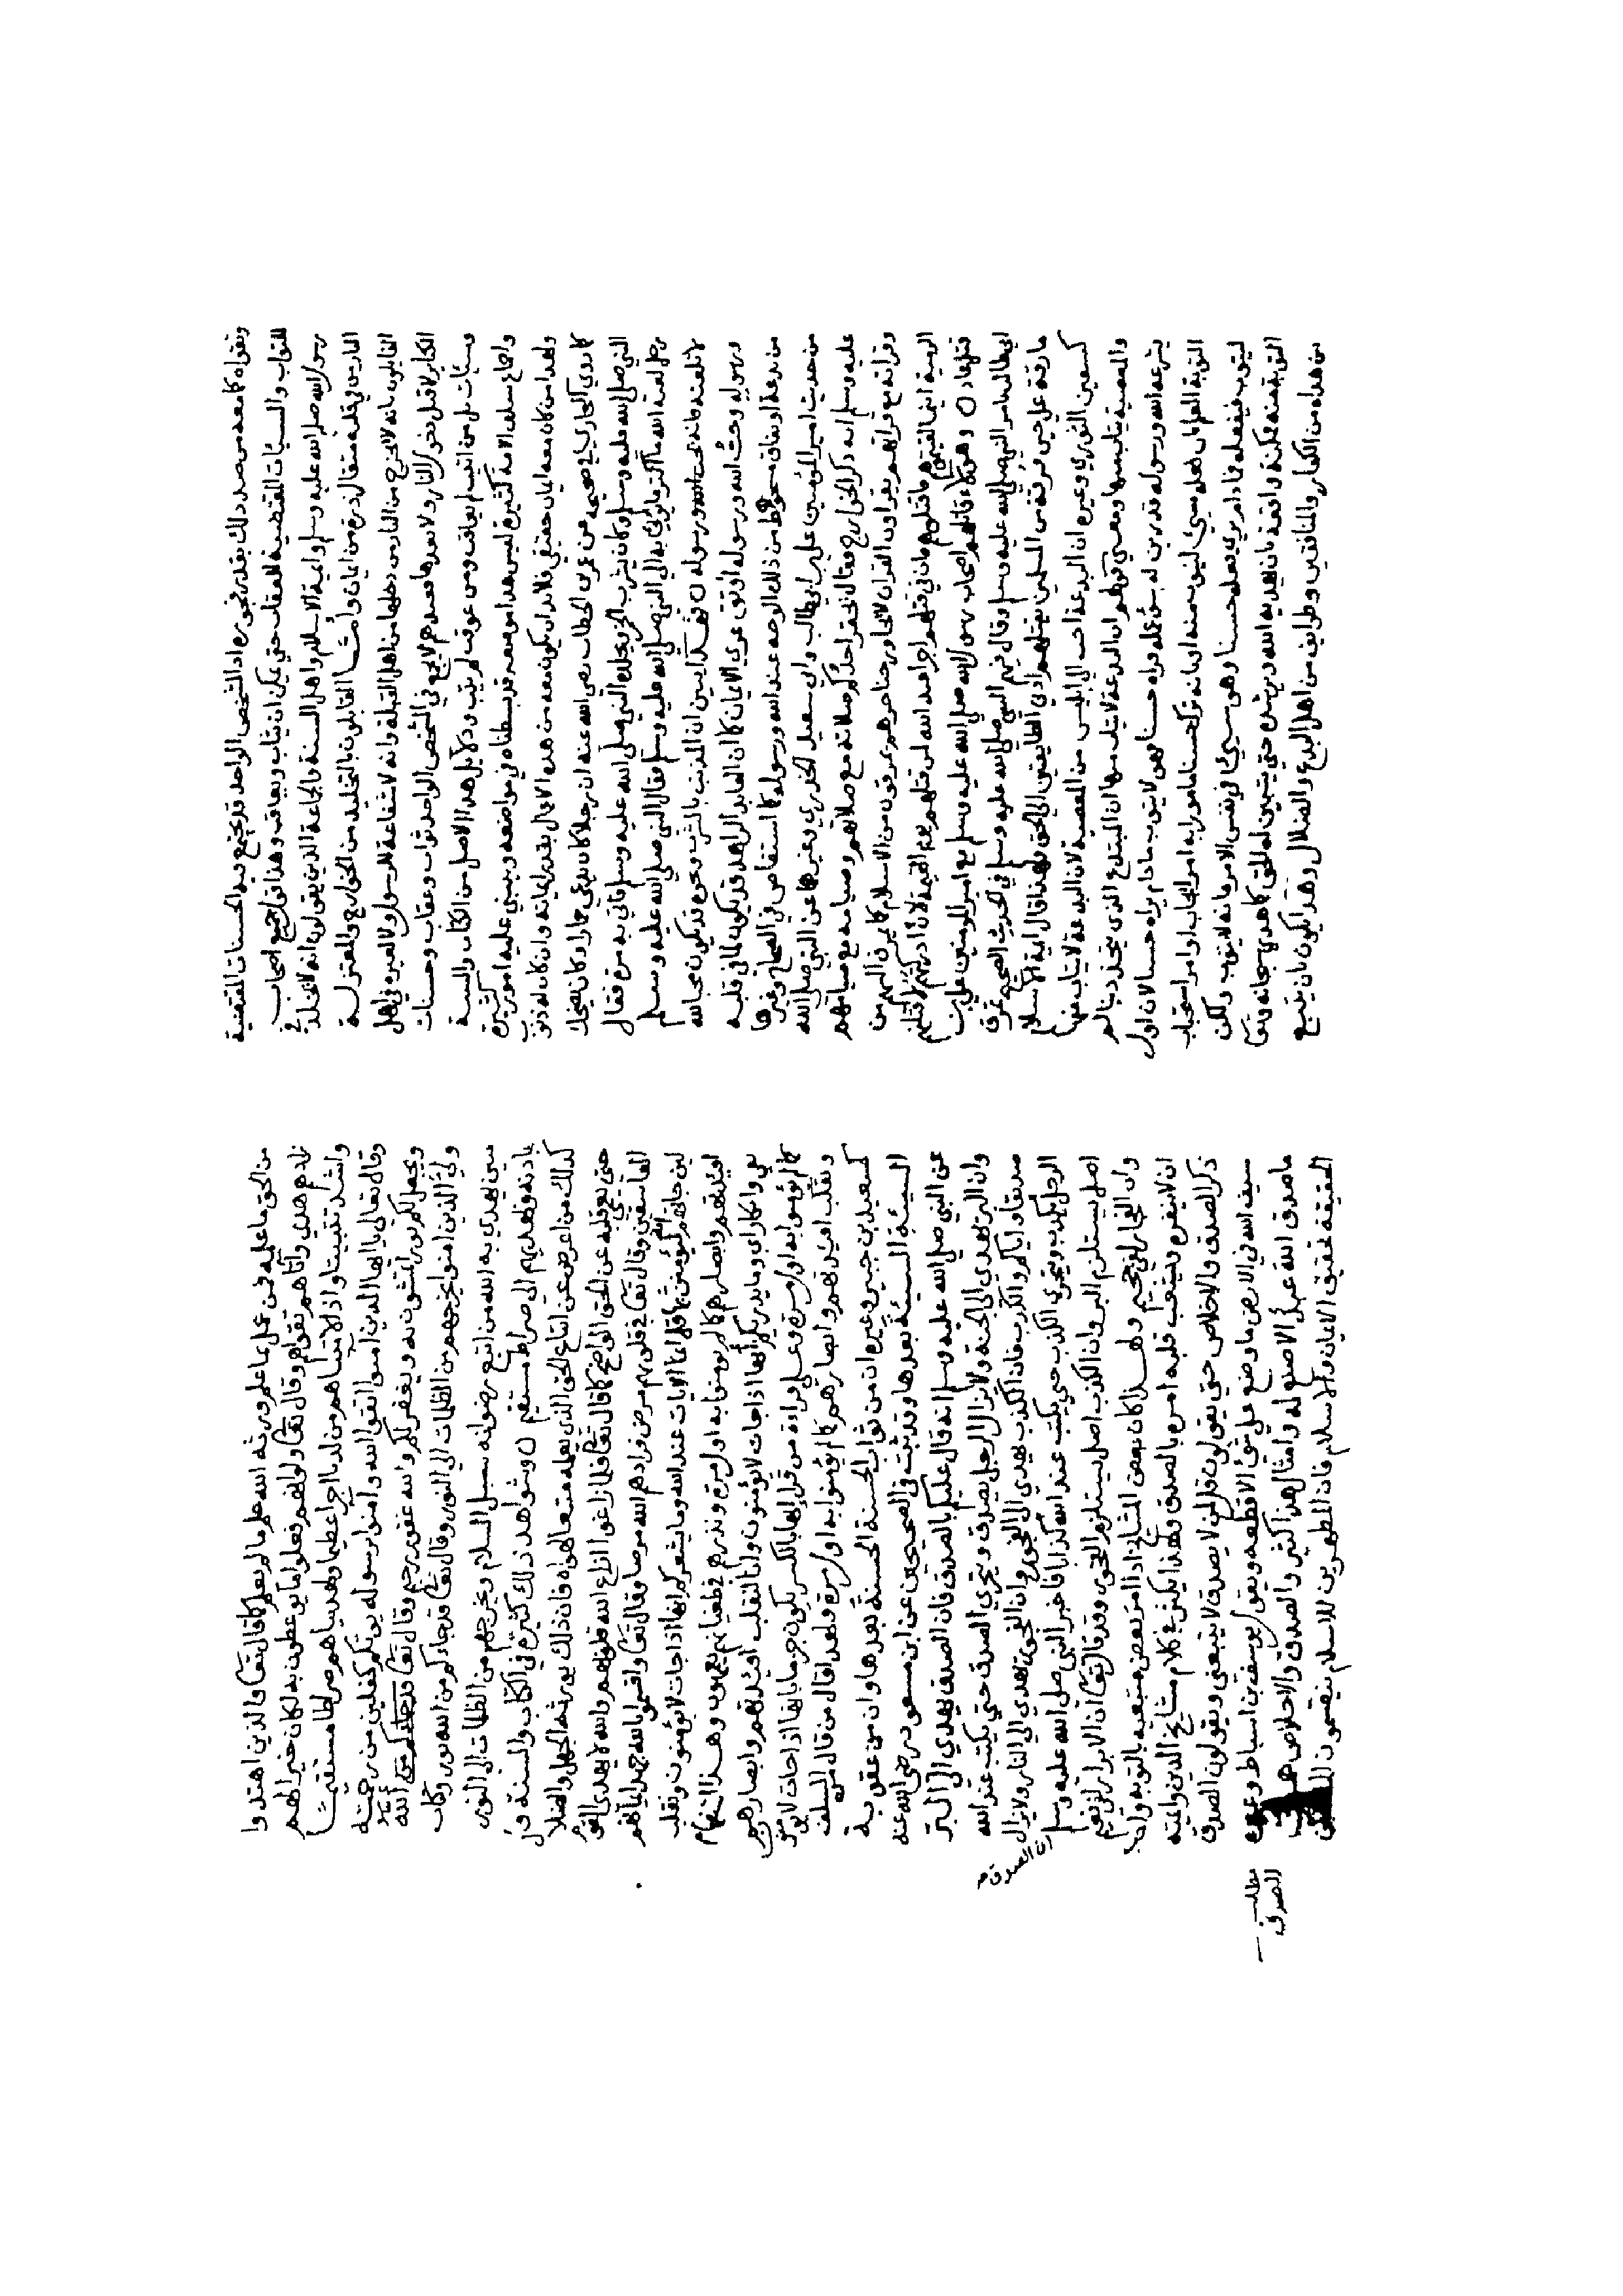 وتقواه كما معه من ضد ذلك بقدر فجوره اذ الشخص الواحد قد تجتمع فيه الحسنات المقتضية
للثواب والسيات المقتضية للعقاب حتى يمكن ان يثاب ويعاقب وهذا قول جميع اصحاب
رسول الله صلى الله عليه وسلم وايمة الاسلام واهل السنة والجماعة الذين يقولون انه لا يخلد في
النار من في قلبه مثقال ذرة من ايمان وامــا القايلون بالتخليد من الخوارج والمعتزلــة
القايلون بانه لا يخرج من النار من دخلها من اهل القبلة وانه لا شفاعة للرسول ولا لغيره في اهل
الكباير لا قبل دخول النار ولا بعدها فعندهم لا يجتمع في الشخص الواحد ثواب وعقاب وحسنات
وسيات بل من اثيب لم يعاقب ومن عوقب لم يثب ودلايل هذا الاصل من الكتاب والسنة
واجماع سلف الامة كثيرة ليس هذا موضعه قد بسطناه في مواضعه وينبني عليه امور كثيرة
ولهذا من كان معه ايمان حقيقي فلا بد ان يكون معه من هذه الاعمال بقدر ايمانه وان كان له ذنوب
كما روى البخاري في صحيحه عن عمر بن الخطاب رضي الله عنه ان رجلا كان يدعى حمارا وكان يضحك
النبي صلى الله عليه وسلم وكان يشرب الخمر ويجلده النبي صلى الله عليه وسلم فاتي به مرة فقال
رجل لعنه الله ما اكثر ما يوتى به الى النبي صلى الله عليه وسلم فقال النبي صلى الله عليه وسلم
لا تلعنه فانه يحب الله ورسوله فهــذا يبين ان المذنب بالشرب وغيره قد يكون محبا لله
ورسوله وحب الله ورسوله اوثق عرى الايمان كما ان العابد الزاهد قد يكون لما في قلبه
من بدعة او نفاق مسخوط من ذلك الوجه عند الله ورسوله كما استفاض في الصحاح وغيرها
من حديث امير المؤمنين علي بن ابي طالب وابي سعيد الخدري وغيرهما عن النبي صلى الله
عليه وسلم انه ذكر الخوارج فقال يحقر احدكم صلاته مع صلاتهم وصيامه مع صيامهم
وقراته مع قراتهم يقراون القران لا يجاوز حناجرهم يمرقون من الاسلام كما يمرق السهم من
الرمية اينما لقيتموهم فاقتلوهم فان في قتلهم اجرا عند الله لمن قتلهم يوم القيمة لان ادركتهم لاقتلنهم
قتل عاد وهولاء قاتلهم اصحاب رسول الله صلى الله عليه وسلم مع امير المؤمنين علي بن
ابي طالب بامر النبي صلى الله عليه وسلم وقال فيهم النبي صلى الله عليه وسلم في الحديث الصحيح تمرق
مارقة على حين فرقة من المسلمين يقتلهم ادنى الطايفتين الى الحق ولهذا قال ايمة الاسلام
كسفين الثوري وغيره ان البدعة احب الى ابليس من المعصية لان البدعة لا يتاب منها
والمعصية يتاب منها ومعنى قولهم ان البدعة لا يتاب منها ان المبتدع الذي يتخذ دينا لم
يشرعه الله ورسوله قد زين له سوء عمله فراه حسنا فهو لا يتوب ما دام يراه حسنا لان اول
التوبة العلم بان فعله سيئ ليتوب منه او بانه ترك حسنا مامورا به امر ايجاب او امر استحباب
ليتوب ويفعله فما دام يرى فعله حسنا وهو سيئ في نفس الامر فانه لا يتوب ولكن
التوبة منه ممكنة وواقعة بان يهديه الله ويرشده حتى يتبين له الحق كما هدى سبحانه وتعا
من هداه من الكفار والمنافقين وطوايف من اهل البدع والضلال وهذا يكون بان يتبع
من الحق ما علمه فمن عمل بما علم ورثه الله علم ما لم يعلم كما قال تعا والذين اهتدوا
زادهم هدى واتاهم تقواهم وقال تعا ولو انهم فعلوا ما يوعظون به لكان خيرا لهم
واشد تثبيتا واذا لاتيناهم من لدنا اجرا عظيما ولهديناهم صراطا مستقيمــا
وقال تعالى يا ايها الذين امنوا اتقوا الله وامنوا برسوله يوتكم كفلين من رحمته
ويجعل لكم نورا تمشون به ويغفر لكم والله غفور رحيم وقال تعا الله
ولي الذين امنوا يخرجهم من الظلمات الى النور وقال تعا قد جاءكم من الله نور وكتاب
مبين يهدي به الله من اتبع رضوانه سبل السلام ويخرجهم من الظلمات الى النور
باذنه ويهديهم الى صراط مستقيم وشواهد ذلك كثيرة في الكتاب والسنة وك
كذلك من اعرض عن اتباع الحق الذي يعلمه متبعا لهواه فان ذلك يورثه الجهل والضلال
حتى يعمى قلبه عن الحق الواضح كما قال تعا فلما زاغوا ازاغ الله قلوبهم والله لا يهدي القوم
الفاسقين وقال تعا في قلوبهم مرض فزادهم الله مرضا وقال تعا واقسموا بالله جهد ايمانهم
لين جاءتهم اية ليؤمنن بها قل انما الايات عند الله وما يشعركم انها اذا جات لا يؤمنون ونقلب
افيدتهم وابصارهم كما لم يومنوا به اول مرة ونذرهم في طغيانهم يعمهون وهــذا استفهام
نفي وانكار اي وما يدريكم انها اذا جات لا يؤمنون وانا نقلب افيدتهم وابصارهم
كما لم يؤمنوا به اول مرة وعلى قراءة من قرا انها بالكسر يكون جزما بانها اذا جات لا يومنون
ونقلب افيدتهم وابصارهم كما لم يؤمنوا به اول مرة ولهذا قال من قال من السلف
كسعيد بن جبير وغيره ان من ثواب الحسنة الحسنة بعدها وان من عقوبة
السيئة السيئة بعدها وقد ثبت في الصحيحين عن ابن مسعود رضي الله عنه
عن النبي صلى الله عليه وسلم انه قال عليكم بالصدق فان الصدق يهدي الى البر
وان البر يهدي الى الجنة ولا يزال الرجل يصدق ويتحرى الصدق حتى يكتب عند الله
صديقا واياكم والكذب فان الكذب يهدي الى الفجور وان الفجور يهدي الى النار ولا يزال
الرجل يكذب ويتحرى الكذب حتى يكتب عند الله كذابا فاخبر النبي صلى الله عليه وسلم
ان الصدق
اصل يستلزم البر وان الكذب اصل يستلزم الفجور وقد قال تعا ان الابرار لفي نعيم
وان الفجار لفي جحيم ولهــذا كان بعض المشايخ اذا امر بعض متبعيه بالتوبة واحب
ان لا ينفره ولا يشعب قلبه امره بالصدق ولهذا يكثر في كلام مشايخ الدين وايمته
ذكر الصدق والاخلاص حتى يقولون قل لمن لا يصدق لا يتبعني ويقولون الصدق
سيف الله في الارض ما وضع على شيء الا قطعه ويقول يوسف بن اسباط وغيره
ما صدق الله عبد الا صنع له وامثال هذا كثير والصدق والاخلاص هما
الحقيقة تحقيق الايمان والاسلام فان المظهرين للاسلام ينقسمون الى
مطلب
الصدق